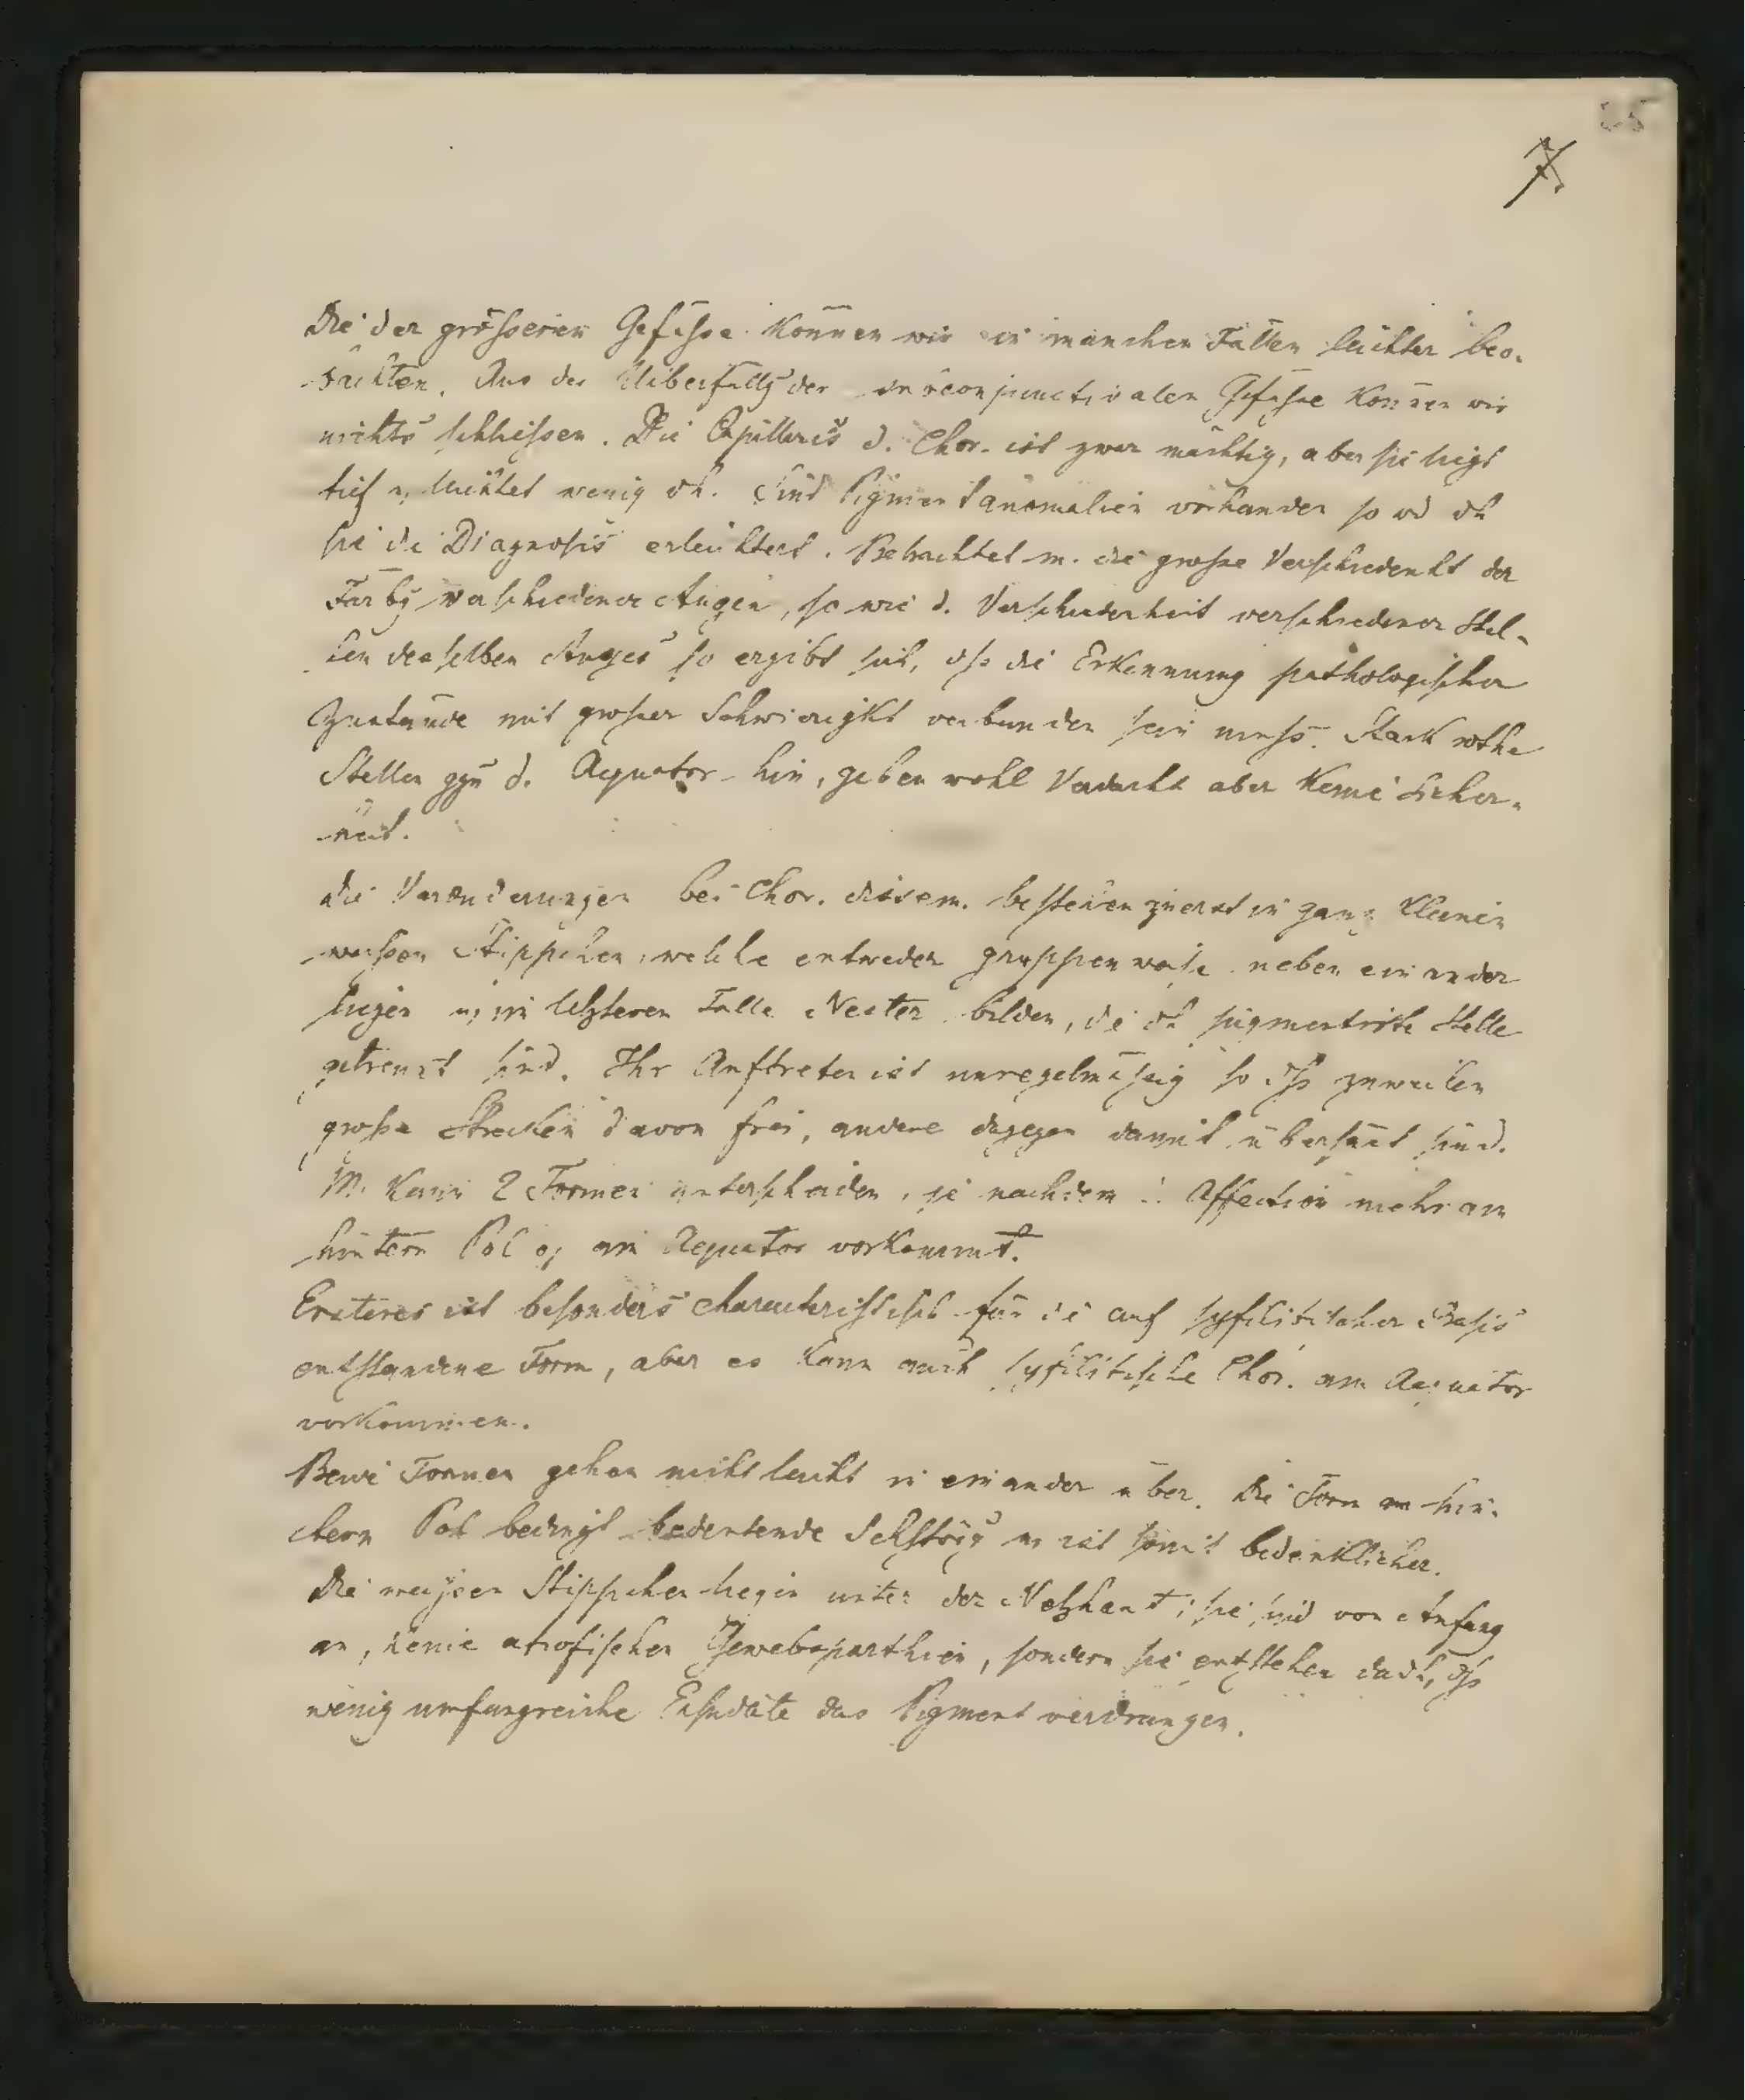 25
7.
Die der größeren Gefäße können wir in manchen Fällen leichter beo-
bachten. Aus der Ueberfüllg der subconjunctivalen Gefäße können wir
nichts schließen. Die Capillaris d. Chor. ist zwar mächtig, aber sie liegt
tief u. leuchtet wenig dh. Sind Pigmentanomalien vorhanden so wd dh
sie die Diagnosis erleichtert. Betrachtet m. die große Verschiedenht der
Färbg verschiedener Augen, so wie d. Verschiedenheit verschiedener Stel-
len desselben Auges so ergibt sich, dß die Erkennung pathologischer
Zustände mit großer Schwierigkt verbunden sein muß. Stark rothe
Stellen ggn d. Aequator hin, geben wohl Verdacht aber keine Sicher-
heit.
die Veränderungen bei Chor. dissem. bestehen zuerst in ganz kleinen
weißen Stippchen, welche entweder gruppenweise neben einander
liegen u. im letzteren Falle Nester bilden, die dh pigmentirte Stelle
getrennt sind. Ihr Auftreten ist unregelmäßig so dß zuweilen
große Strecken davon frei, andere dagegen damit übersäet sind.
M. kann 2 Formen unterscheiden, je nachdem d. Affection mehr am
hintern Pol o. am Aequator vorkommt.
Ersteres ist besonders charakteristisch für die auf syfilitischer Basis
entstandene Form, aber es kann auch syfilitische Chor. am Aequator
vorkommen.
Beide Formen gehen nicht leicht in einander über. Die Form am hin-
tern Pol bedingt bedeutende Sehstörg u. ist somit bedenklicher.
Die weißen Stippchen liegen unter der Netzhaut; sie sind von Anfang
an, keine atrofischen Gewebsparthien, sondern sie entstehen dadh, dß
wenig umfangreiche Exsudate das Pigment verdrängen.